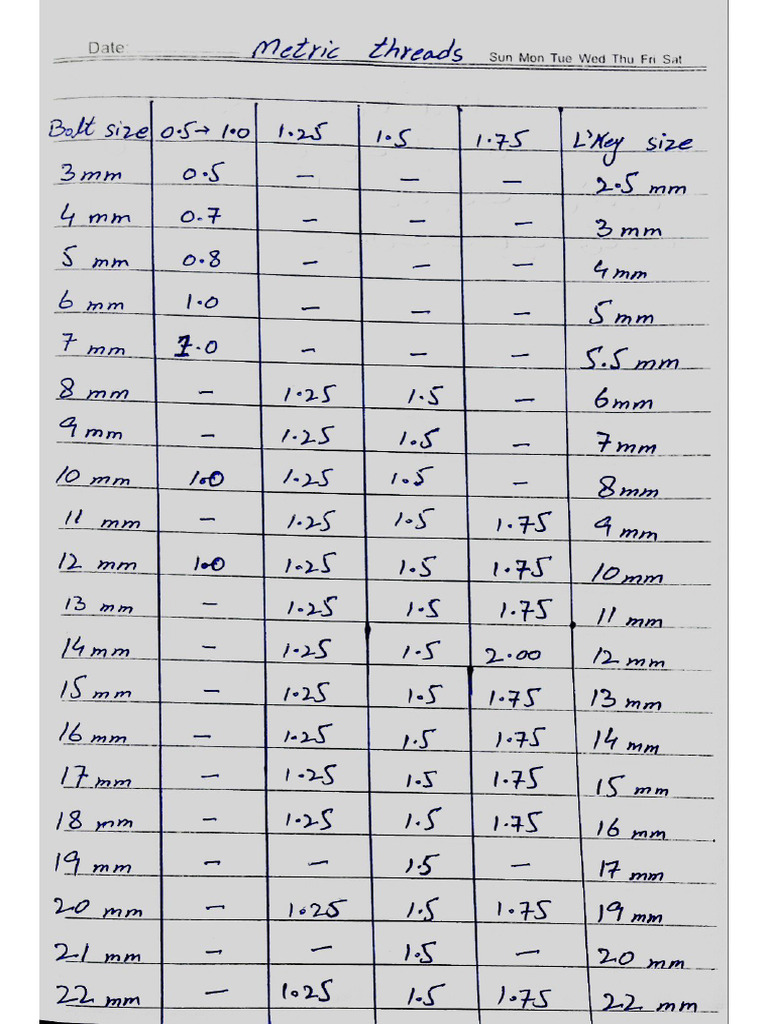 Date: Metric threads Sun Mon Tue Wed Thu Fri Sat
Bolt size 0.5→1.0 1.25 1.5 1.75 L'Key size
3 mm 0.5 – – – 2.5 mm
4 mm 0.7 – – – 3 mm
5 mm 0.8 – – – 4 mm
6 mm 1.0 – – – 5 mm
7 mm 1.0 – – – 5.5 mm
8 mm – 1.25 1.5 – 6 mm
9 mm – 1.25 1.5 – 7 mm
10 mm 1.0 1.25 1.5 – 8 mm
11 mm – 1.25 1.5 1.75 9 mm
12 mm 1.0 1.25 1.5 1.75 10 mm
13 mm – 1.25 1.5 1.75 11 mm
14 mm – 1.25 1.5 2.00 12 mm
15 mm – 1.25 1.5 1.75 13 mm
16 mm – 1.25 1.5 1.75 14 mm
17 mm – 1.25 1.5 1.75 15 mm
18 mm – 1.25 1.5 1.75 16 mm
19 mm – – 1.5 – 17 mm
20 mm – 1.25 1.5 1.75 19 mm
21 mm – – 1.5 – 20 mm
22 mm – 1.25 1.5 1.75 22 mm